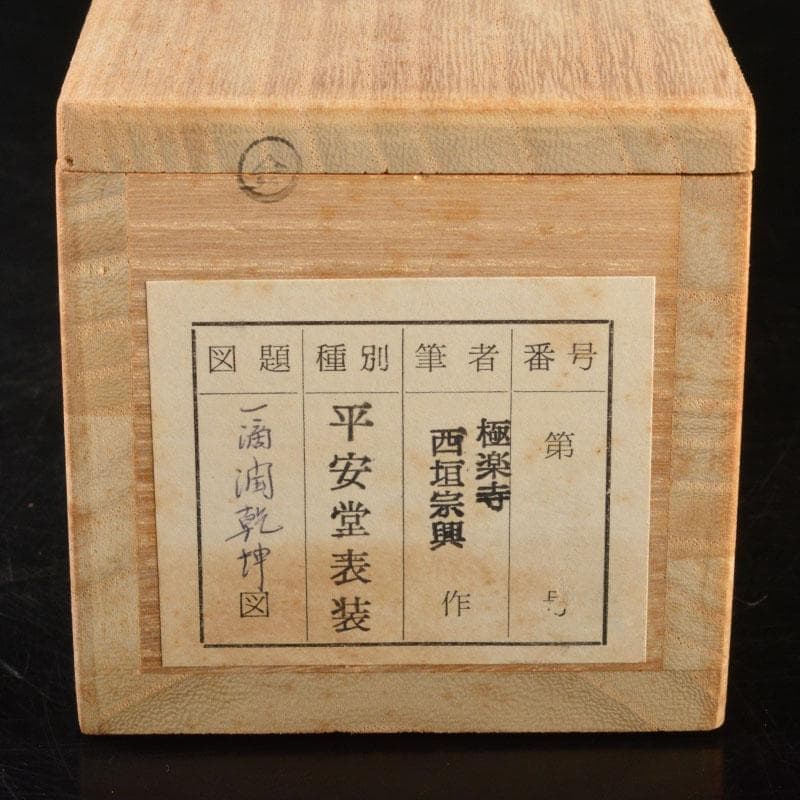 番号
第 号
筆者
極楽寺
西垣宗興
作
種別
平安堂表装
図題
一滴潤乾坤図